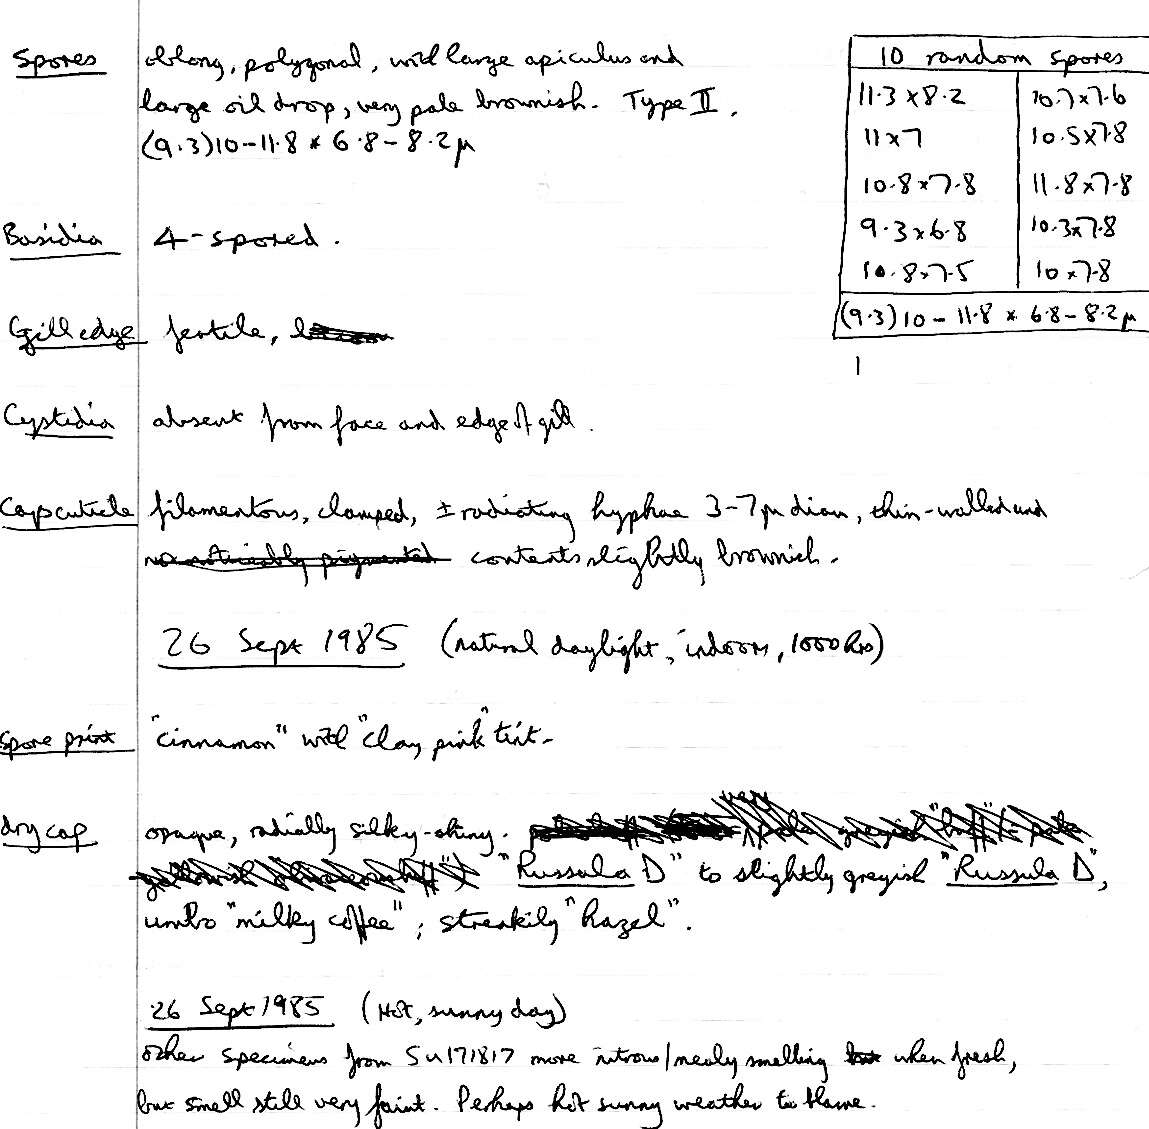 Spores oblong, polygonal, with large apiculus and
large oil drop, very pale brownish. Type II.
(9.3)10-11.8 × 6.8-8.2µ
10 random spores
11.3×8.2 10.7×7.6
11×7 10.5×7.8
10.8×7.8 11.8×7.8
9.3×6.8 10.3×7.8
10.8×7.5 10×7.8
(9.3)10-11.8 × 6.8-8.2µ
Basidia 4-spored.
Gill edge fertile,
Cystidia absent from face and edge of gill.
Cap cuticle filamentous, clamped, ± radiating hyphae 3-7µ diam, thin-walled and
no noticeably pigmented contents slightly brownish.
26 Sept 1985 (natural daylight, indoors, 1000 hrs)
Spore print "cinnamon" with "clay pink" tint.
dry cap opaque, radially silky-shiny. very pale greyish "buff" to pale
yellowish "Russula D" to slightly greyish "Russula D",
umbo "milky coffee"; streakily "hazel".
26 Sept 1985 (Hot, sunny day)
Other specimens from SU171817 more nitrous/mealy smelling but when fresh,
but smell still very faint. Perhaps hot sunny weather to blame.